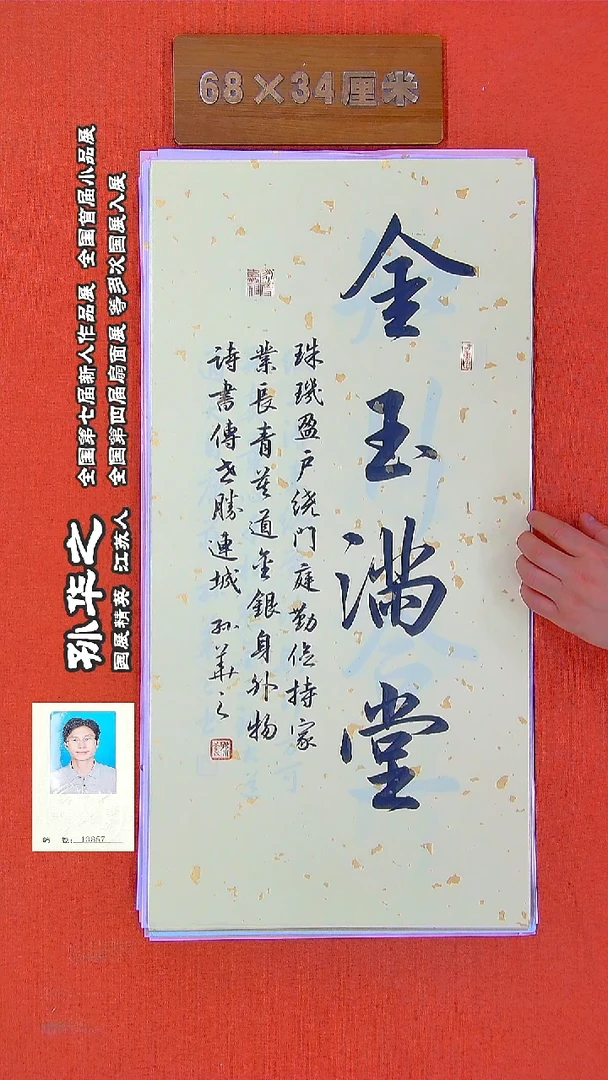 68×34厘米
金玉满堂
珠璣盈戶绕门庭勤俭持家
業長青莫道金銀身外物
詩書傳世勝連城 孙華之
全国第七届新人作品展 全国首届小品展
全国第四届扇面展 等多次国展入展
孙华之
国展精英 江苏人
13857